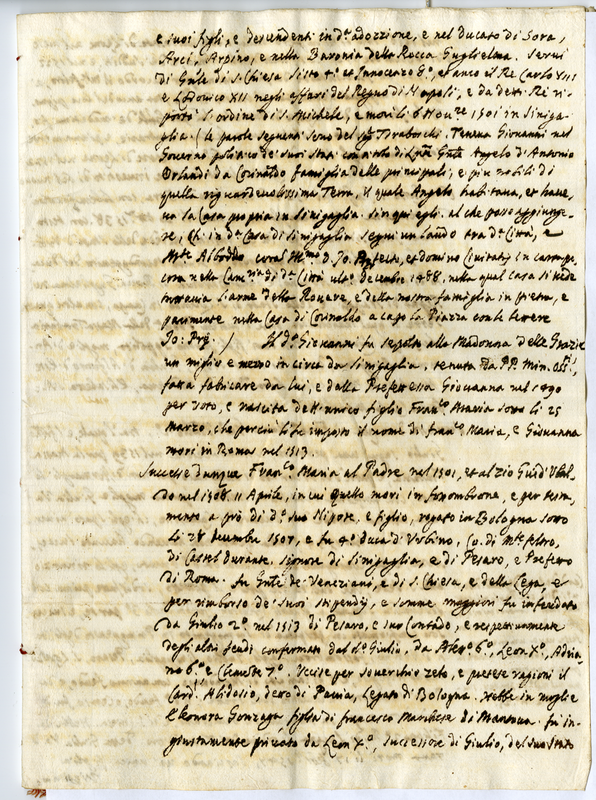 e suoi figli, e descendenti in d.ª adozzione, e nel Ducato di Sora,
Arci, Arpino, e nella Baronia della Rocca Guglielma. Servì
di Gnle di S. Chiesa Sisto 4.º et Innocenzo 8.º, et anco il Re Carlo VIII
e Lodovico XII negli affari del Regno di Napoli, e da detti Re ri-
portò l'ordine di S. Michele, e morì li 6 Nov.re 1501 in Siniga-
glia. (le parole seguenti sono del Tenera Giovanni nel
Governo politico de' suoi stati con titolo di Angelo d'Antonio
Orlandi da Corinaldo famiglia delle principali, e più nobili di
quella riguardevolissima Terra, il quale Angelo habitava, et have-
va la Casa propria in Sinigaglia. sin qui egli. al che posso aggiunge-
re, Ch. in d.ª Casa di Sinigaglia seguì un laudo tra d.ª Città, e
D. Jo. et domino Civitatis in
nella di d.ª Città ult.º Decembre 1488. nella qual casa si vede
tuttavia l'arme della Rovere, e della nostra famiglia in pietra, e
parimente nella Casa di Corinaldo a capo la Piazza con le lettere
Jo: Prę. ) Il d.º Giovanni fu sepolto alla Madonna delle Grazie
un miglio e mezzo in circa da Sinigaglia, tenuta da PP. Min. Oss.ti,
fatta fabricare da lui, e dalla Prefettessa Giovanna nel 1490
per voto, e nascita dell'unico figlio Fran.co Maria sotto li 25
Marzo, che perciò li fu imposto il nome di Fran.co Maria, e Giovanna
morì in Roma nel 1513.
Successe dunque Fran.co Maria al Padre nel 1501, et al zio Guid'Ubal-
do nel 1508 11 Aprile, in cui quello morì in Fossombrone, e per testa-
mento a prò di d.º suo Nipote, e figlio, rogato in Bologna sotto
li 28 decembre 1507, e fu 4.º duca d'Urbino, Co. di M.te feltro,
di Castel Durante, signore di Sinigaglia, e di Pesaro, e Prefetto
di Roma. fu Gnle de' Veneziani, e di S. Chiesa, e della Lega, e
per rimborso de' suoi stipendij, e somme maggiori fu infeudato
da Giulio 2.º nel 1513 di Pesaro, e suo Contado, e respettivamente
degl'altri feudi confermato dal d.º Giulio, da Aless.º 6.º, Leon X.º, Adria-
no 6.º e Clemente 7.º. Uccise per soverchio zelo, e pretese ragioni il
Card.l Alidosio, detto di Pavia, Legato di Bologna. Hebbe in moglie
Eleonora Gonzaga figlia di Francesco Marchese di Mantova. fu in-
giustamente privato da Leon X.º, successore di Giulio, del suo stato